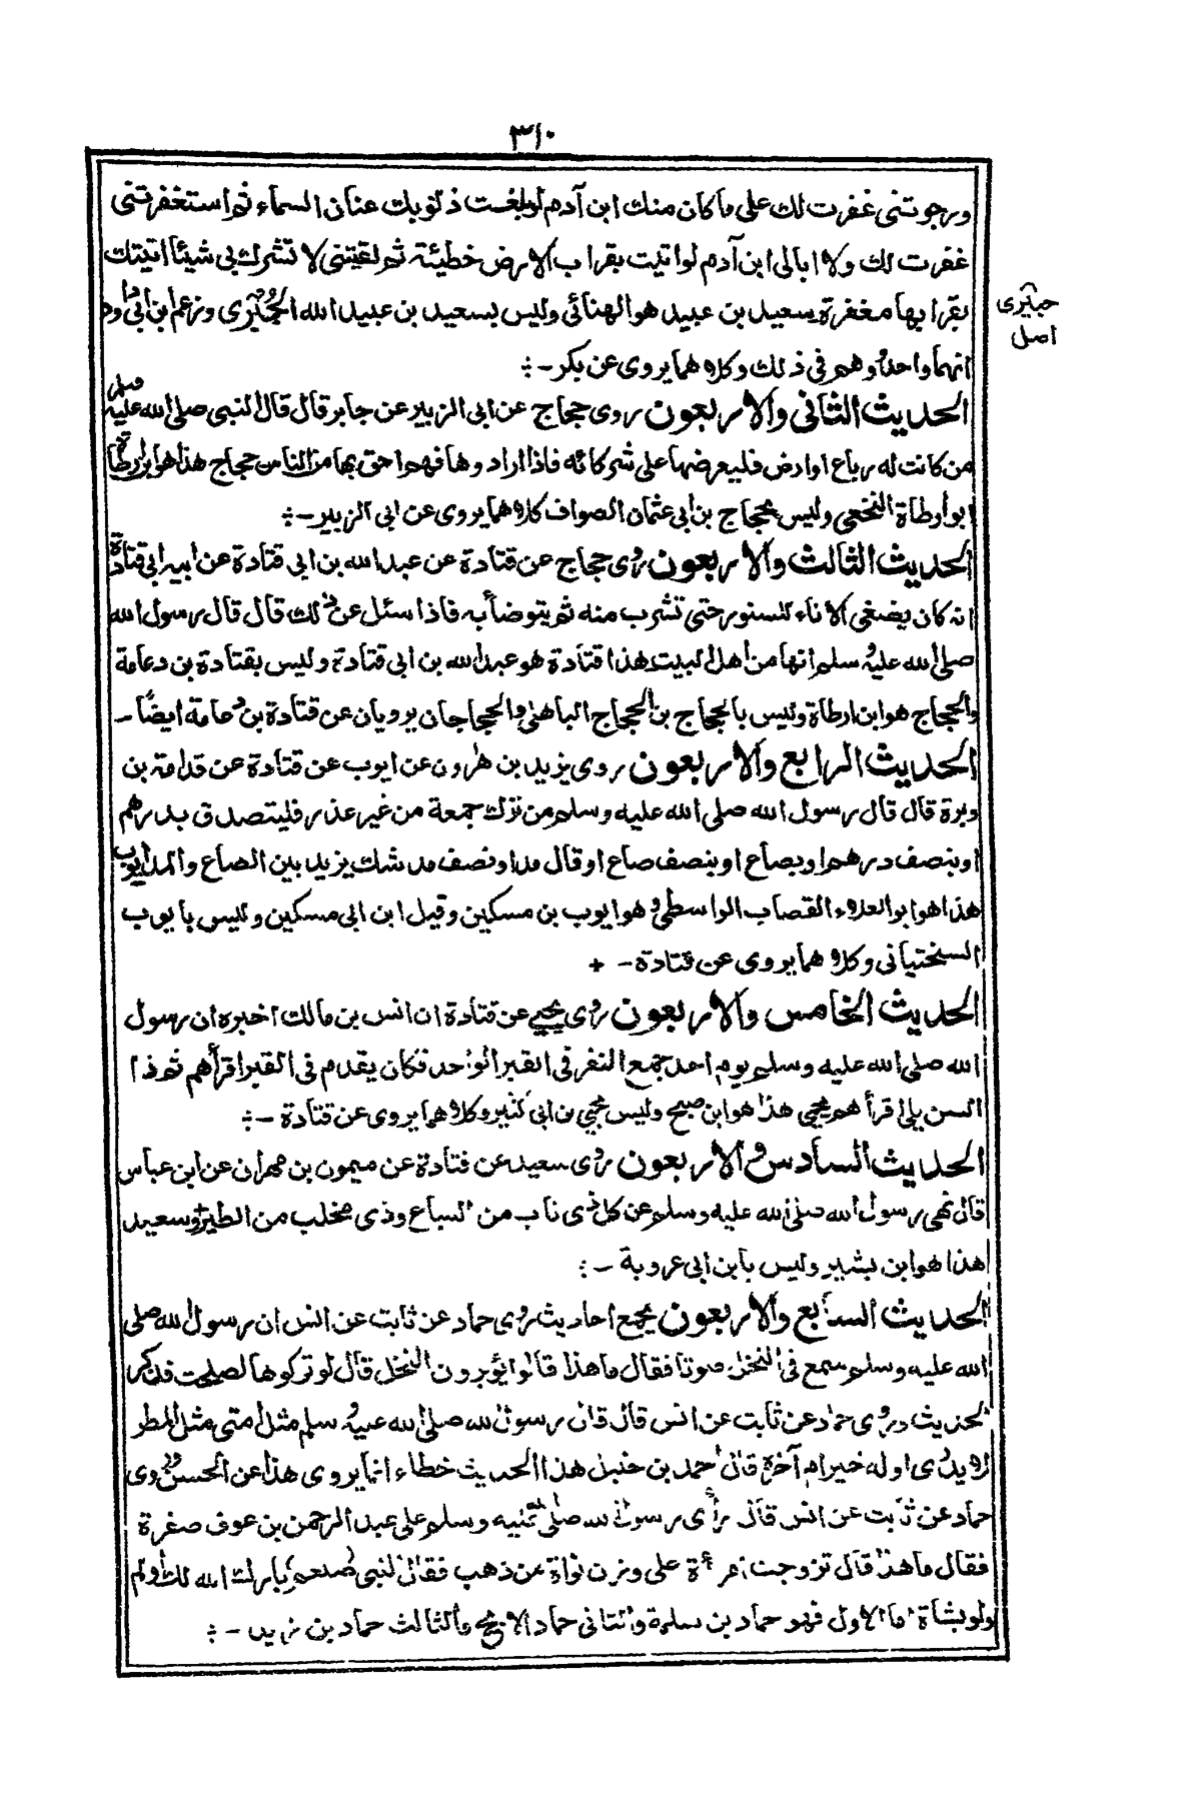 ٣١٠
ورجوتنى غفرت لك على ما كان منك ابن آدم لو بلغت ذنوبك عنان السماء ثم استغفرتنى
غفرت لك ولا ابالى ابن آدم لو اتيت بقراب الارض خطيئة ثم لقيتنى لا تشرك بى شيئا اتيتك
بقرابها مغفرة سعيد بن عبيد هو الهنائى وليس بسعيد بن عبيد الله الجبيرى وزعم ابن ابى داود
جبيرى
اصل
انهما واحد وهم فى ذلك وكلاهما يروى عن بكر -:
الحديث الثانى والاربعون روى حجاج عن ابى الزبير عن جابر قال قال النبى صلى الله عليه وسلم
من كانت له رباع او ارض فليعرضها على شركائه فاذا اراد وها فهم احق بها من الناس حجاج هذا هو ابن ارطاة
ابو ارطاة النخعى وليس بحجاج بن ابى عثمان الصواف كلاهما يروى عن ابى الزبير -:
الحديث الثالث والاربعون روى حجاج عن قتادة عن عبد الله بن ابى قتادة عن ابيه ابى قتادة
انه كان يضغى الاناء للسنور حتى تشرب منه ثم يتوضأ به فاذا سئل عن ذلك قال قال رسول الله
صلى الله عليه وسلم انها من اهل البيت هذا قتادة هو عبد الله بن ابى قتادة وليس بقتادة بن دعامة
والحجاج هو ابن ارطاة وليس بالحجاج بن الحجاج الباهلى والحجاجان يرويان عن قتادة بن دعامة ايضا -
الحديث الرابع والاربعون روى يزيد بن هارون عن ايوب عن قتادة عن قدامة بن
وبرة قال قال رسول الله صلى الله عليه وسلم من ترك جمعة من غير عذر فليتصدق بدرهم
او بنصف درهم او بصاع او بنصف صاع او قال مد او نصف مد شك يزيد بين الصاع والمد ايوب
هذا هو ابو العلاء القصاب الواسطى وهو ايوب بن مسكين وقيل ابن ابى مسكين وليس بايوب
السختيانى وكلاهما يروى عن قتادة - +
الحديث الخامس والاربعون روى يحيى عن قتادة ان انس بن مالك اخبره ان رسول
الله صلى الله عليه وسلم يوم احد جمع النفر فى القبر الواحد فكان يقدم فى القبر اقرأهم ثم ذا
السن يلى اقرأهم يحيى هذا هو ابن صبيح وليس يحيى بن ابى كثير وكلاهما يروى عن قتادة -:
الحديث السادس والاربعون روى سعيد عن قتادة عن ميمون بن مهران عن ابن عباس
قال نهى رسول الله صلى الله عليه وسلم عن كل ذى ناب من السباع وذى مخلب من الطير وسعيد
هذا هو ابن بشير وليس بابن ابى عروبة -:
الحديث السابع والاربعون يجمع احاديث روى حماد عن ثابت عن انس ان رسول الله صلى
الله عليه وسلم سمع فى النخل صوتا فقال ما هذا قالوا يؤبرون النخل قال لو تركوها لصلحت فذكر
الحديث وروى حماد عن ثابت عن انس قال قال رسول الله صلى الله عليه وسلم مثل امتى مثل المطر
لا يدرى اوله خير ام آخره قال احمد بن حنبل هذا الحديث خطاء انما يروى هذا عن الحسن وروى
حماد عن ثابت عن انس قال رأى رسول الله صلى الله عليه وسلم على عبد الرحمن بن عوف صفرة
فقال ما هذا قال تزوجت امرءة على وزن نواة من ذهب فقال النبى صلعم بارك الله لك اولم
ولو بشاة اما الاول فهو حماد بن سلمة والثانى حماد الابح والثالث حماد بن زيد -: